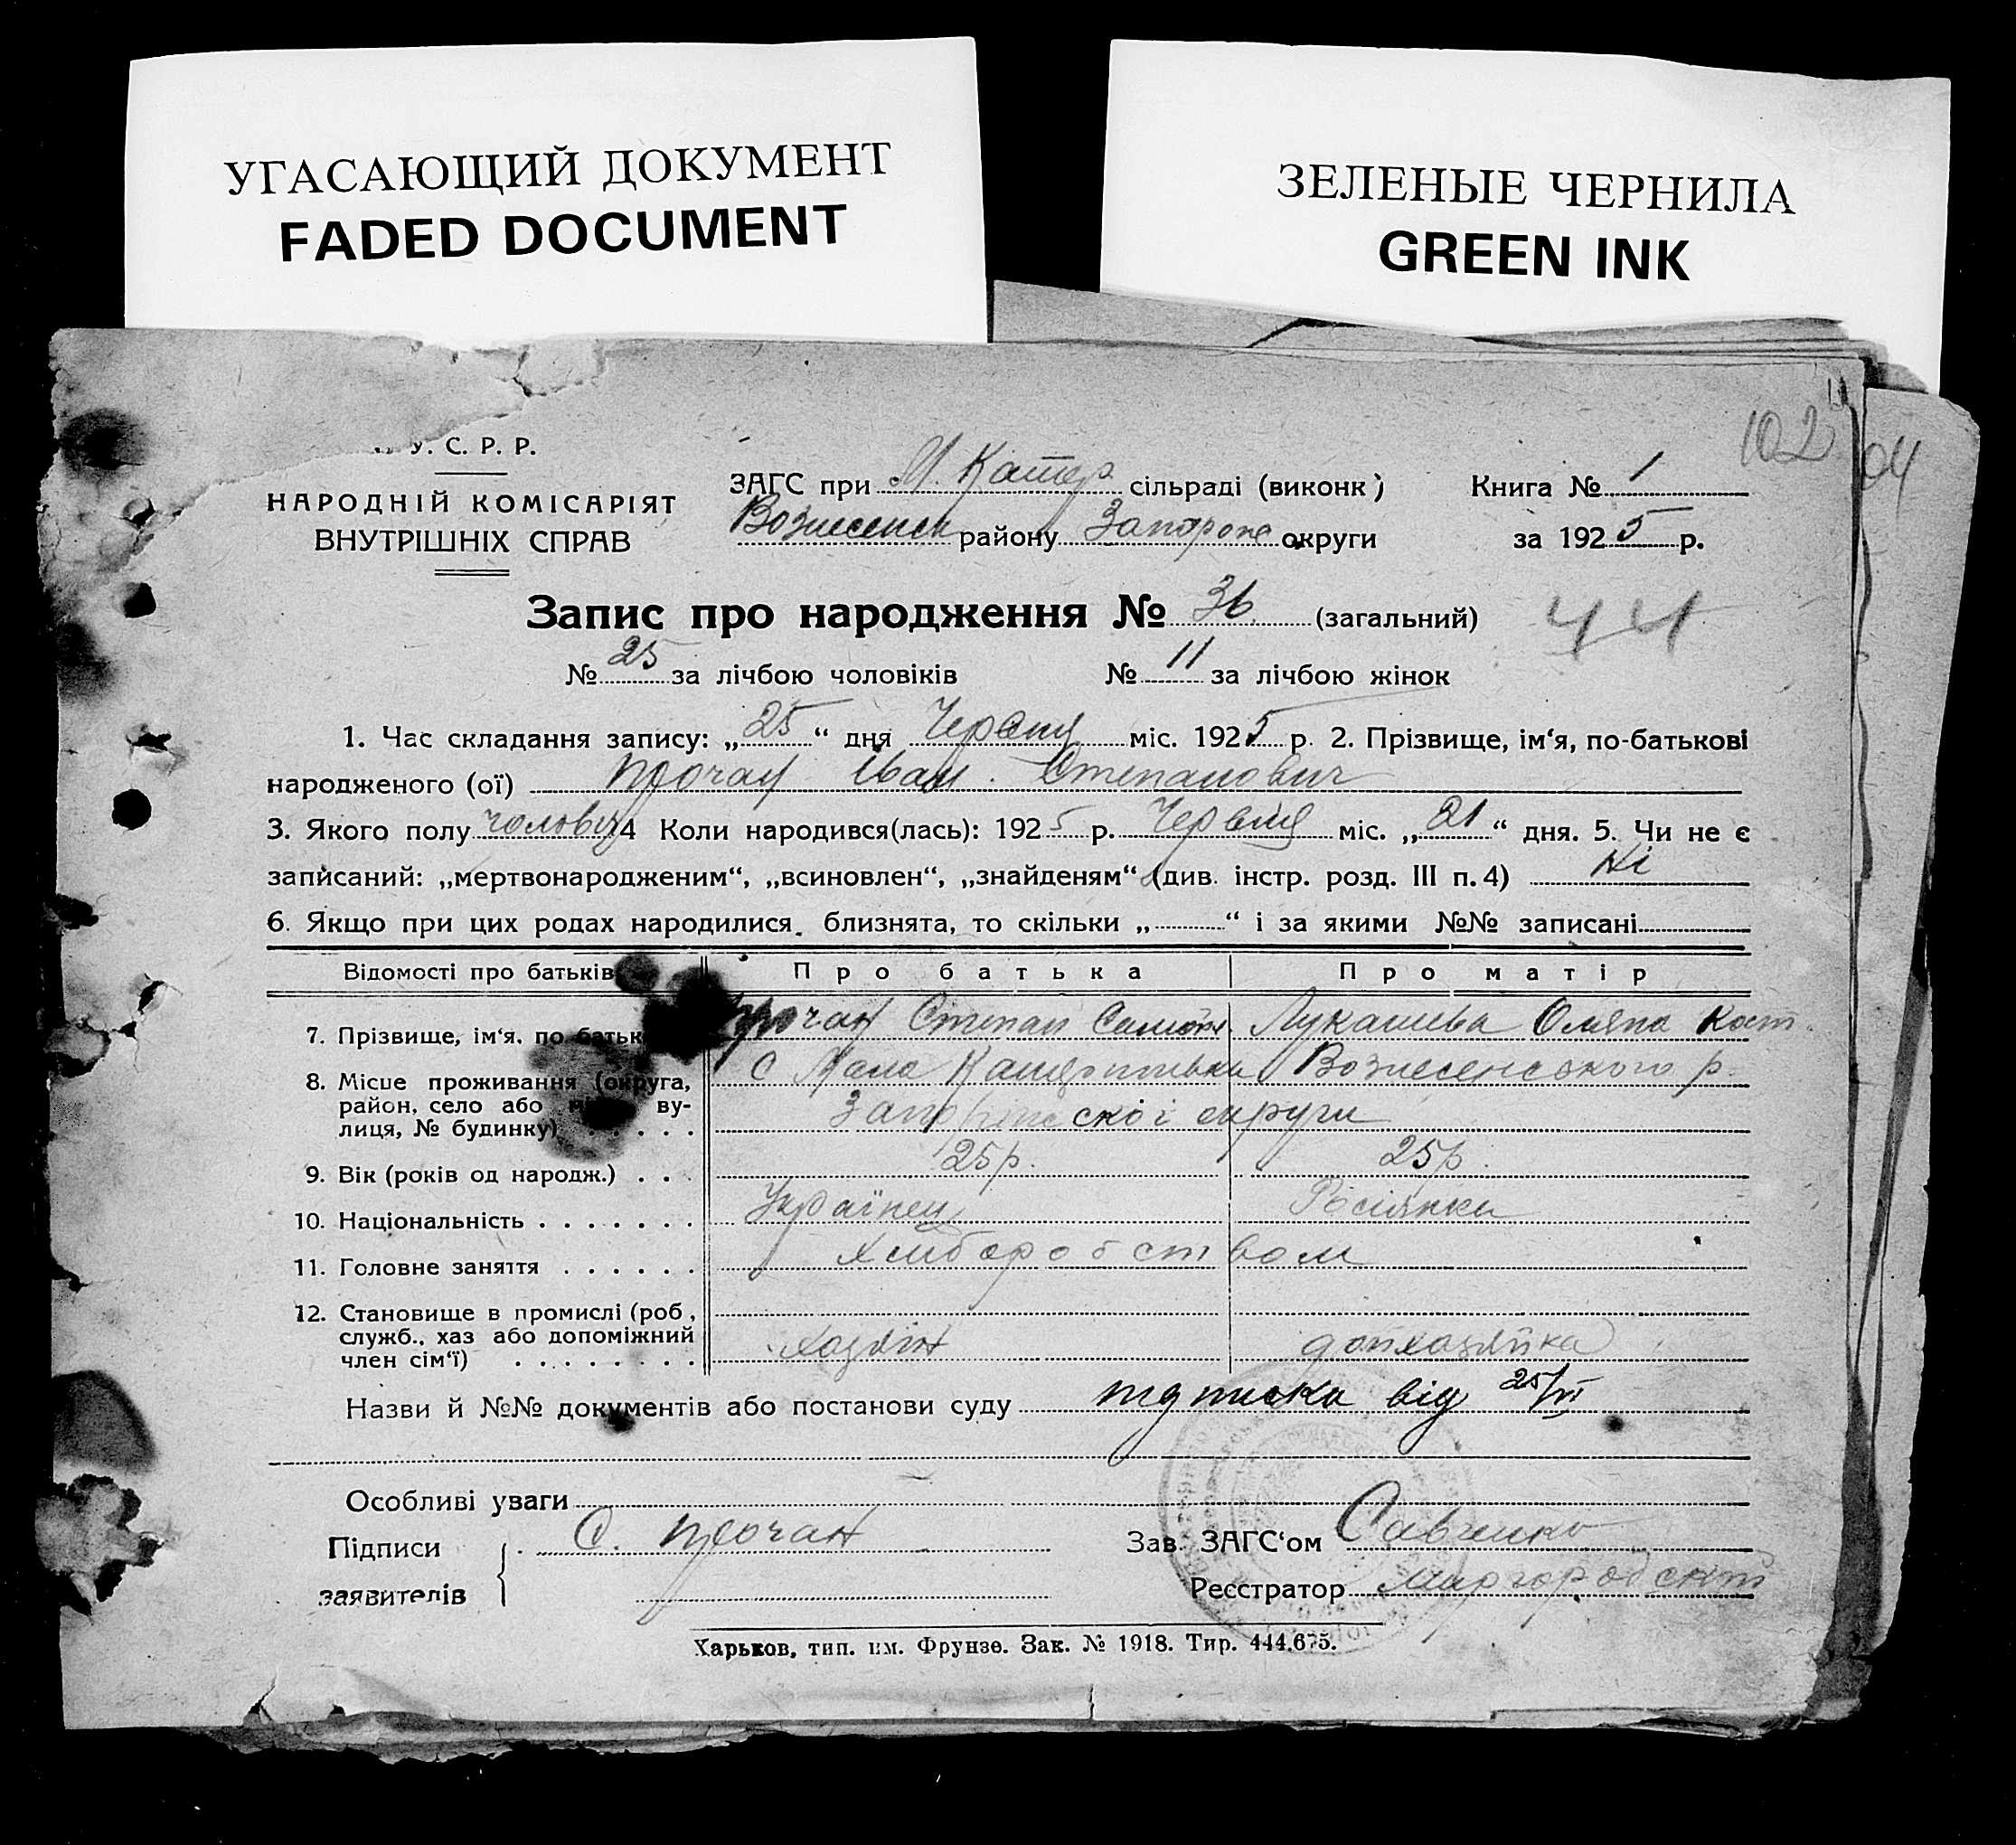 УГАСАЮЩИЙ ДОКУМЕНТ
FADED DOCUMENT
ЗЕЛЕНЫЕ ЧЕРНИЛА
GREEN INK
102
04
У. С. Р. Р.
НАРОДНІЙ КОМІСАРІЯТ
ВНУТРІШНІХ СПРАВ
ЗАГС при М. Катер. сільраді (виконк.)
Вознесенск району Запорож округи
Книга № 1
за 1925 р.
Запис про народження № 36 (загальний)
44
№ 25 за лічбою чоловіків № 11 за лічбою жінок
1. Час складання запису: „25“ дня Червня міс. 1925 р. 2. Прізвище, ім‘я, по-батькові
народженого (ої) Прочан Іван Степанович
3. Якого полу чоловіч 4 Коли народився(лась): 1925 р. Червня міс. „21“ дня. 5. Чи не є
записаний: „мертвонародженим“, „всиновлен“, „знайденям“ (див. інстр. розд. III п. 4) Ні
6. Якщо при цих родах народилися близнята, то скільки „ “ і за якими №№ записані
Відомості про батьків Про батька Про матір
7. Прізвище, ім‘я, по батьк Прочан Степан Лукашева Оляна Кост.
8. Місце проживання (округа, с Мала Катеринівка Вознесенського р.
район, село або ву-
лиця, № будинку) округи
9. Вік (років од народж.) 25 р. 25 р.
10. Національність Українец Росіянка
11. Головне заняття Хліборобством
12. Становище в промислі (роб.,
служб., хаз або допоміжний
член сім‘ї) хазяїн домхазяйка
Назви й №№ документів або постанови суду підписка від 25/VI
Особливі уваги
Підписи
заявителів
С. Прочан
Зав. ЗАГС‘ом Савченко
Реєстратор Миргородскій
Харьков, тип. им. Фрунзе. Зак. № 1918. Тир. 444.675.